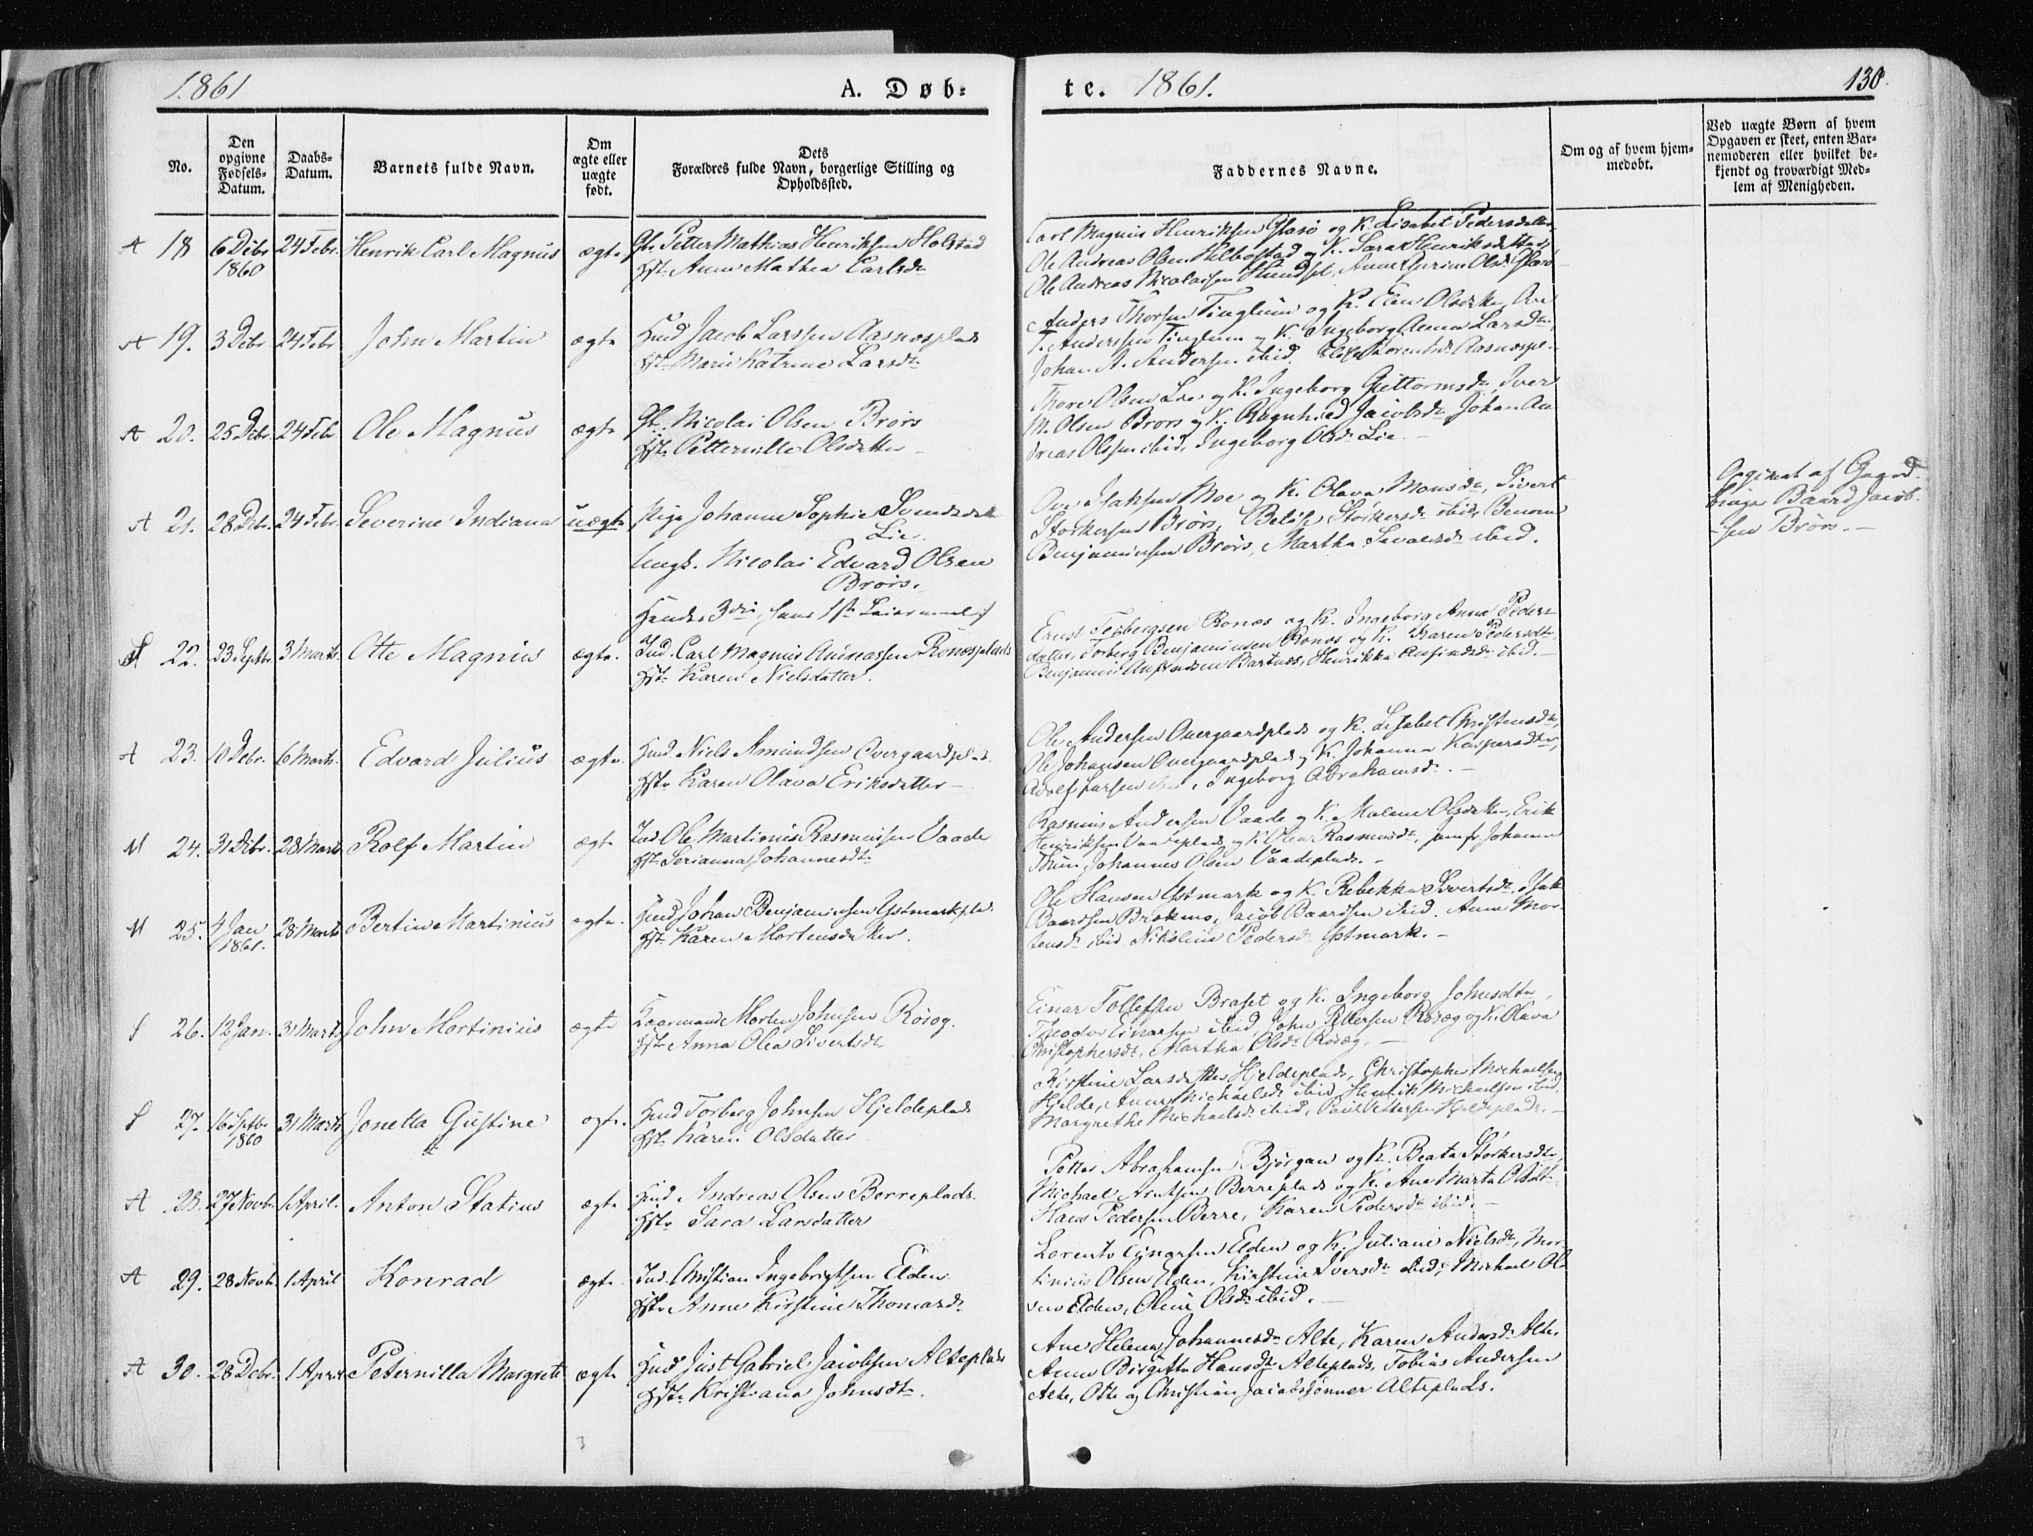 1861
A. Døb-
te. 1861.
130
No.
Den opgivne Fødsels-Datum.
Daabs-Datum.
Barnets fulde Navn.
Om ægte eller uægte født.
Dets Forældres fulde Navn, borgerlige Stilling og Opholdssted.
Faddernes Navne.
Om og af hvem hjem-medøbt.
Ved uægte Børn af hvem Opgaven er skeet, enten Bar-nemoderen eller hvilket be-kjendt og troværdigt Med-lem af Menigheden.
A 18 6 Debr 1860 24 Febr. Henrik Carl Magnus ægte Petter Mathias Henriksen Holstad
Anne Mathea Carlsdr
Carl Magnus Henriksen Glasø og K. Lisabet Pedersdatter
Ole Andreas Olsen Helbostad og K. Sara Henriksdatter
Ole Andreas Nicolaisen
A 19. 3 Debr 24 Febr John Martin ægte Jacob Larssen Aasnæsplads
Marie Katrine Larsdr
Anders Thorsen Tinglum og K. Elen Olsdatter, Ole
T. Anderssen Tinglum og K. Ingeborg Anna Larsdr
Johan A. Andersen ibid.
A 20. 25 Debr. 24 Febr Ole Magnus ægte Nicolai Olsen Brørs
Petternille Olsdatter
Thore Olsen Lie og K. Ingeborg Guttormsdr, Iver
M. Olsen Brørs og K. Ragnhild Jacobsdr Johan An
dreas Olsen ibid, Ingeborg Olsdr Lie. -
A 21. 28 Debr. 24 Febr. Severine Indiana uægte Pige Johanne Sophie Svendsdatter
Lie.
Ungk. Nicolai Edvard Olsen
Brørs.
Ole Isaksen Moe og K. Olava Monsdr, Sivert
Størkersen Brørs, Størkersdr ibid, Benom
Benjaminsen Brørs, Martha Sevaldsdr ibid.
Opgivet af Gaard-
bruger Baard Jacob-
sen Brørs. -
S 22. 23 Septbr 3 Marts. Otte Magnus ægte. Ind. Carl Magnus Andreassen Ronæsplads
Karen Nielsdatter.
Ernst Torbergsen Ronæs og K. Ingeborg Anna Peders
datter, Torberg Benjaminsen Ronæs og K. Karen Pedersdtr
Benjamin Bartnes, Henrikka ibid. -
A 23. 10 Debr. 6 Marts. Edvard Julius ægte. Niels Amundsen Overgaardplads.
Karen Olava Eriksdatter -
Ole Andersen Overgaardplads og K. Lisabet Christensdr,
Ole Johansen Overgaardplads og K. Johanna Kaspersdtr,
Adolf Larsen, Ingeborg Abrahamsdr. -
M 24. 31 Debr. 28 Marts Rolf Martin ægte Ind. Ole Martinus Rasmussen Vaade
Serianna Johannesdr
Rasmus Andersen Vaade og K. Malene Olsdatter, Erik
Henriksen Vaadeplads og K. Rasmusdr, Jomfr. Johanna
Thun, Johannes Olsen Vaadeplads. -
M 25. 4 Jan 1861. 28 Marts Bertin Martinius ægte. Johan Benjaminsen Østmarkpls.
Karen Mortensdatter.
Ole Hansen Østmark og K. Rebekka Sivertsdr, Isak
Baardsen Brækmo, Jacob Baardsen ibid. Anne Mor
tensdr ibid, Nikoline Pedersdr Østmark. -
S 26. 12 Jan. 31 Marts John Mortinius ægte Morten Johnsen Røseg.
Anna Olea Sivertsdr
Einar Tollefsen Braset og K. Ingeborg Johnsdtr,
Theodor Einarsen ibid John Pettersen Røsæg og K. Olava
Christophersdr, Martha Olsdr Røsæg. -
S 27. 16 Septbr 1860 31 Marts Jonetta Gustine ægte. Torberg Johnsen Hjeldeplads
Karen Olsdatter
Kirstine Larsdatter Hjeldeplads, Christopher Michaelsen
Hjelde, Anne Michaelsdr ibid, Henrik Michaelsen ibid,
Margrethe Michaelsdr ibid, Paul Hjeldeplads. -
A 28. 27 Novbr. 1 April. Anton Statius ægte Andreas Olsen Berreplads
Sara Larsdatter
Petter Abrahamsen Bjørgan og K. Beata Størkersdtr,
Michael Arntsen Berreplads og K. Ane Marta Olsdtr
Hans Pedersen Berre, Karen Pedersdr ibid. -
A 29. 28 Novbr 1 April Konrad ægte. Ind. Christian Ingebrigtsen Elden
Anne Kirstine Thomasdr
Lorents Einarsen Elden og K. Juliane Nielsdr, Mor
tinius Olsen Elden, Kirstine Iversdr ibid, Michael Ol
sen Elden, Oline Olsdr ibid. -
A 30. 28 Debr. 1 April Peternilla Margrete ægte Just Gabriel Jacobsen Alteplads
Kristiana Johnsdtr.
Ane Helena Johannesdr Alte, Karen Andersdr Alte,
Anne Birgitta Hansdr Alteplads, Tobias Andersen
Alte, Otte og Christian Jacobssønner Alteplads.